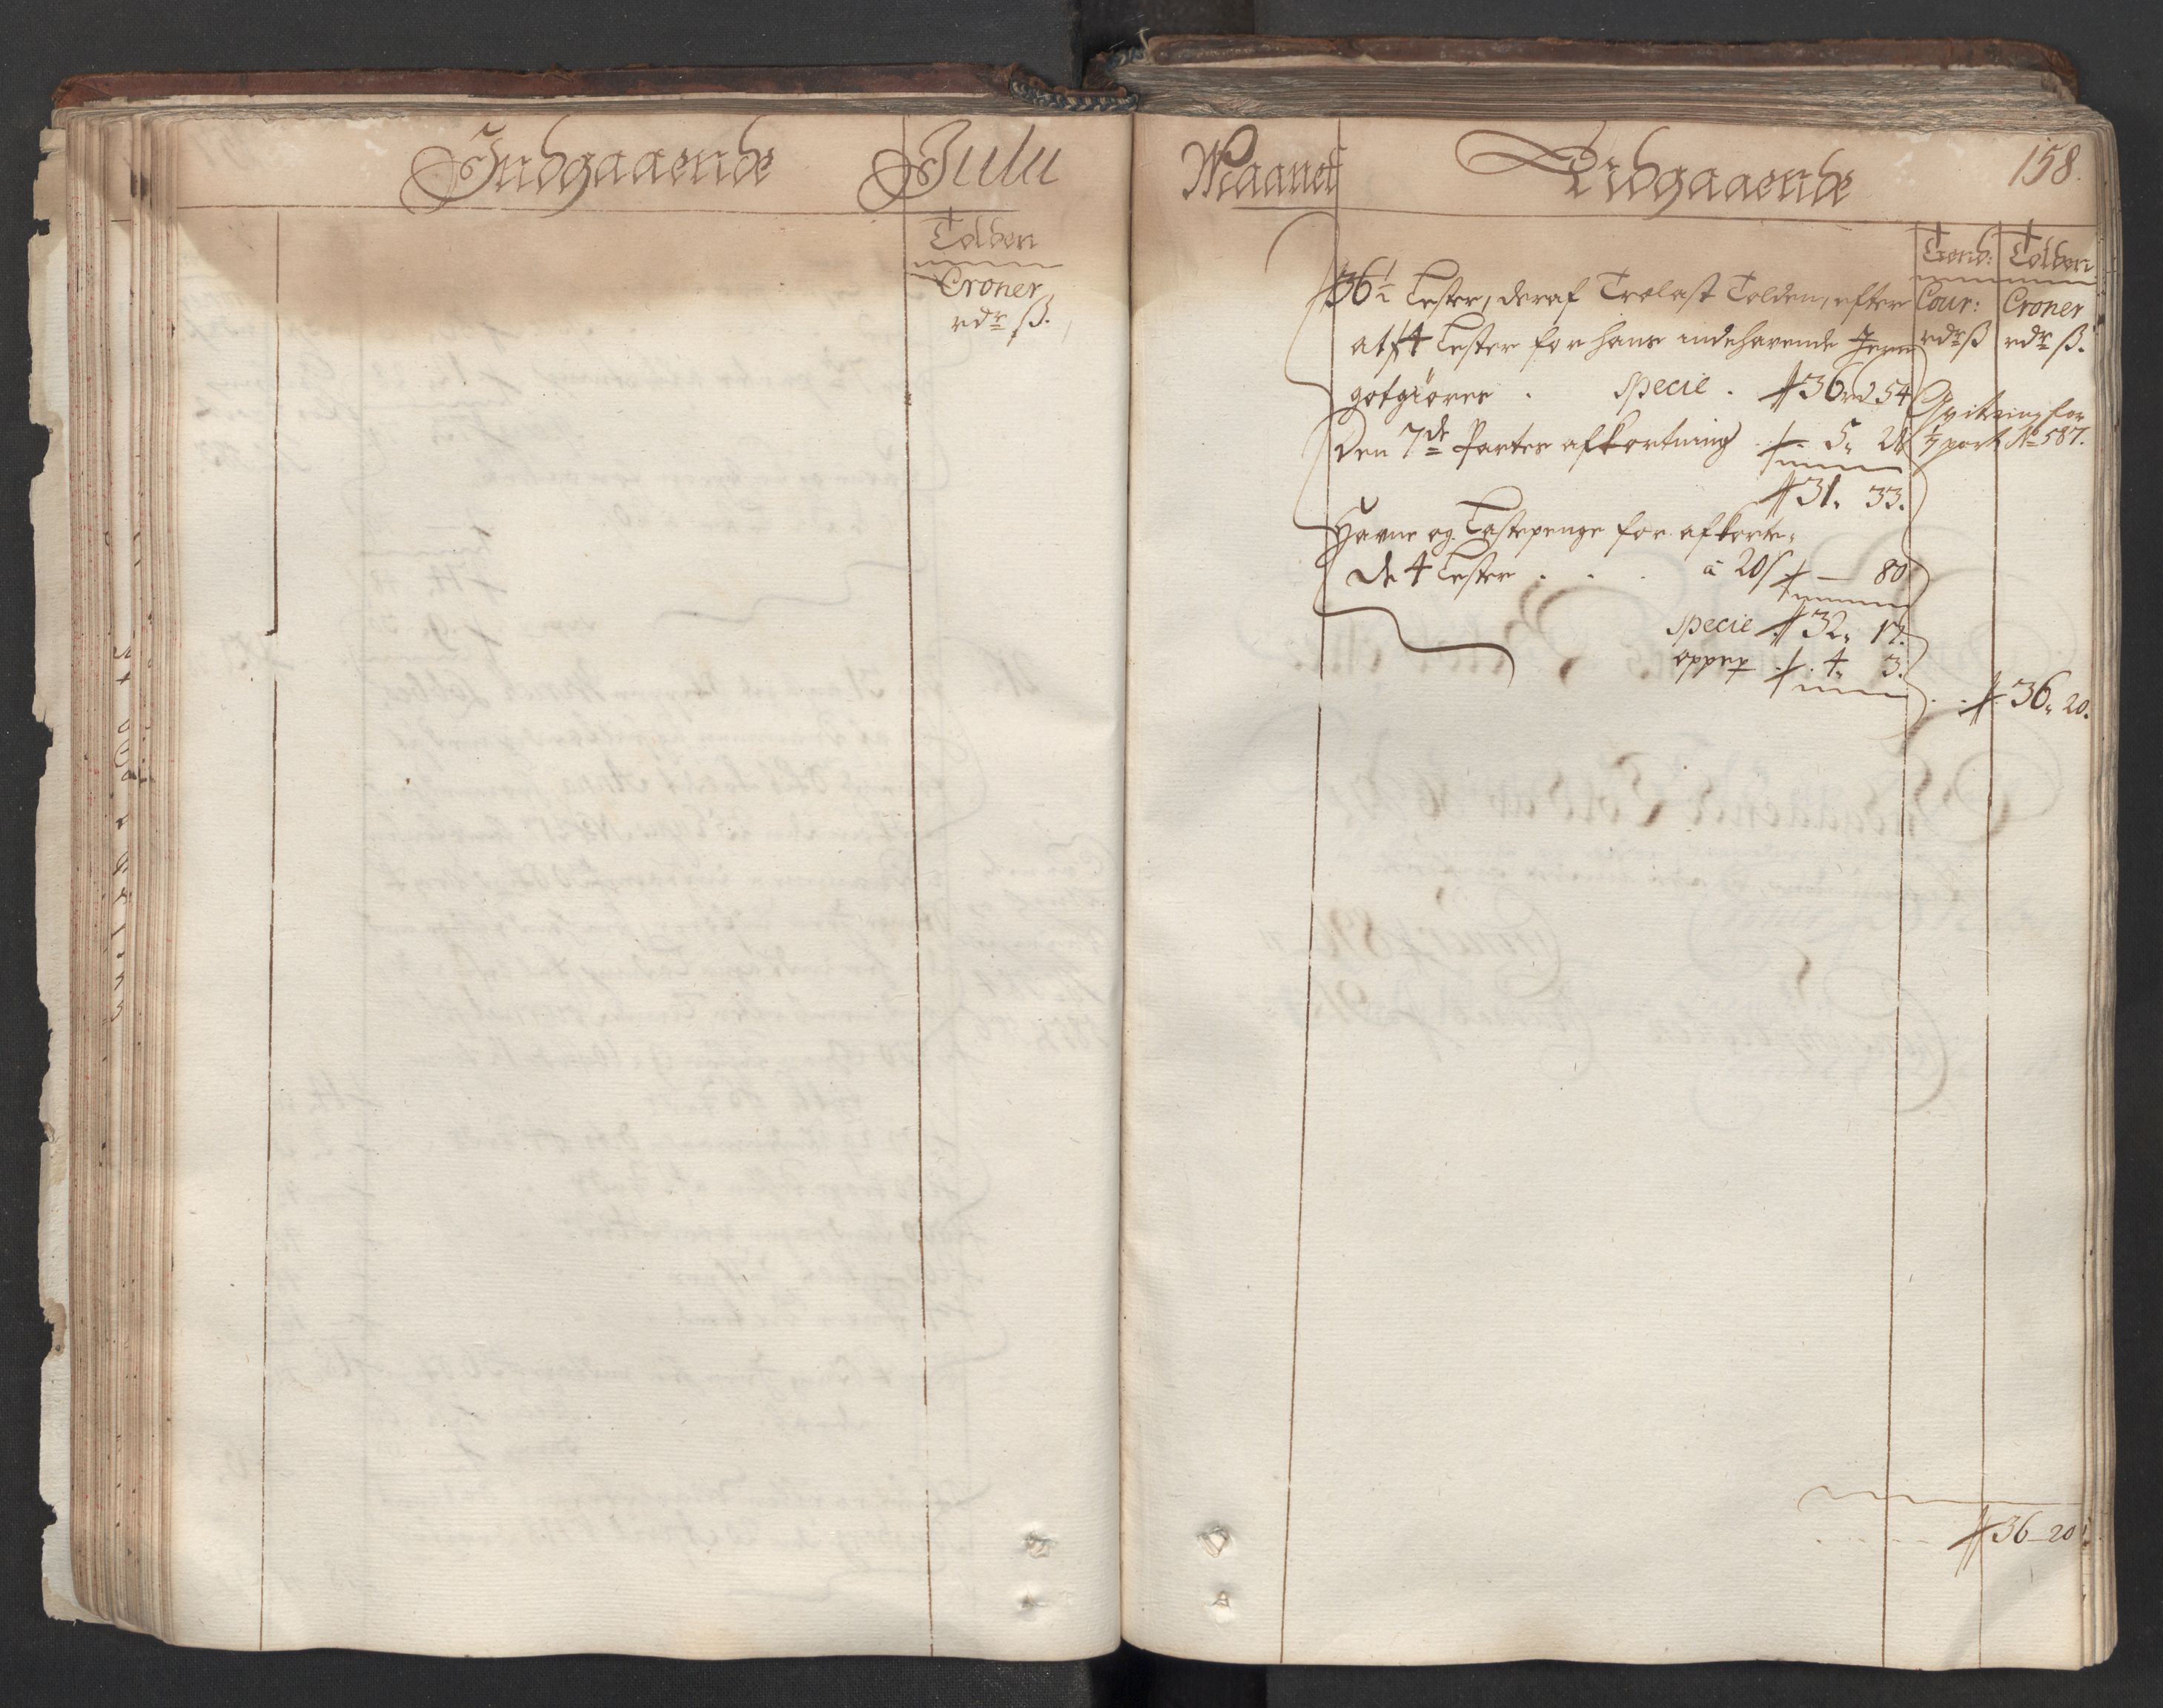 Indgaaende Julii
Tolden
Croner
rdr ß.
Maanet Udgaaende 158.
Tiend: Tolden
Cour: Croner
rdr ß rdr ß.
36½ Lester, deraf Trelast Tolden, efter
at 4 Lester for hans indehavende Jern
gotgiøres . Specie . 36 rd 54
Qvitering for
1/7 part No 587.
Den 7de Partes afkortning . 5„ 21
31„ 33.
Havne og Lastepenge for afkorte„
de 4 Lester . . . à 20 ß — 80
Specie 32„ 17.
opp . 4„ 3.
36„ 20.
36 - 20